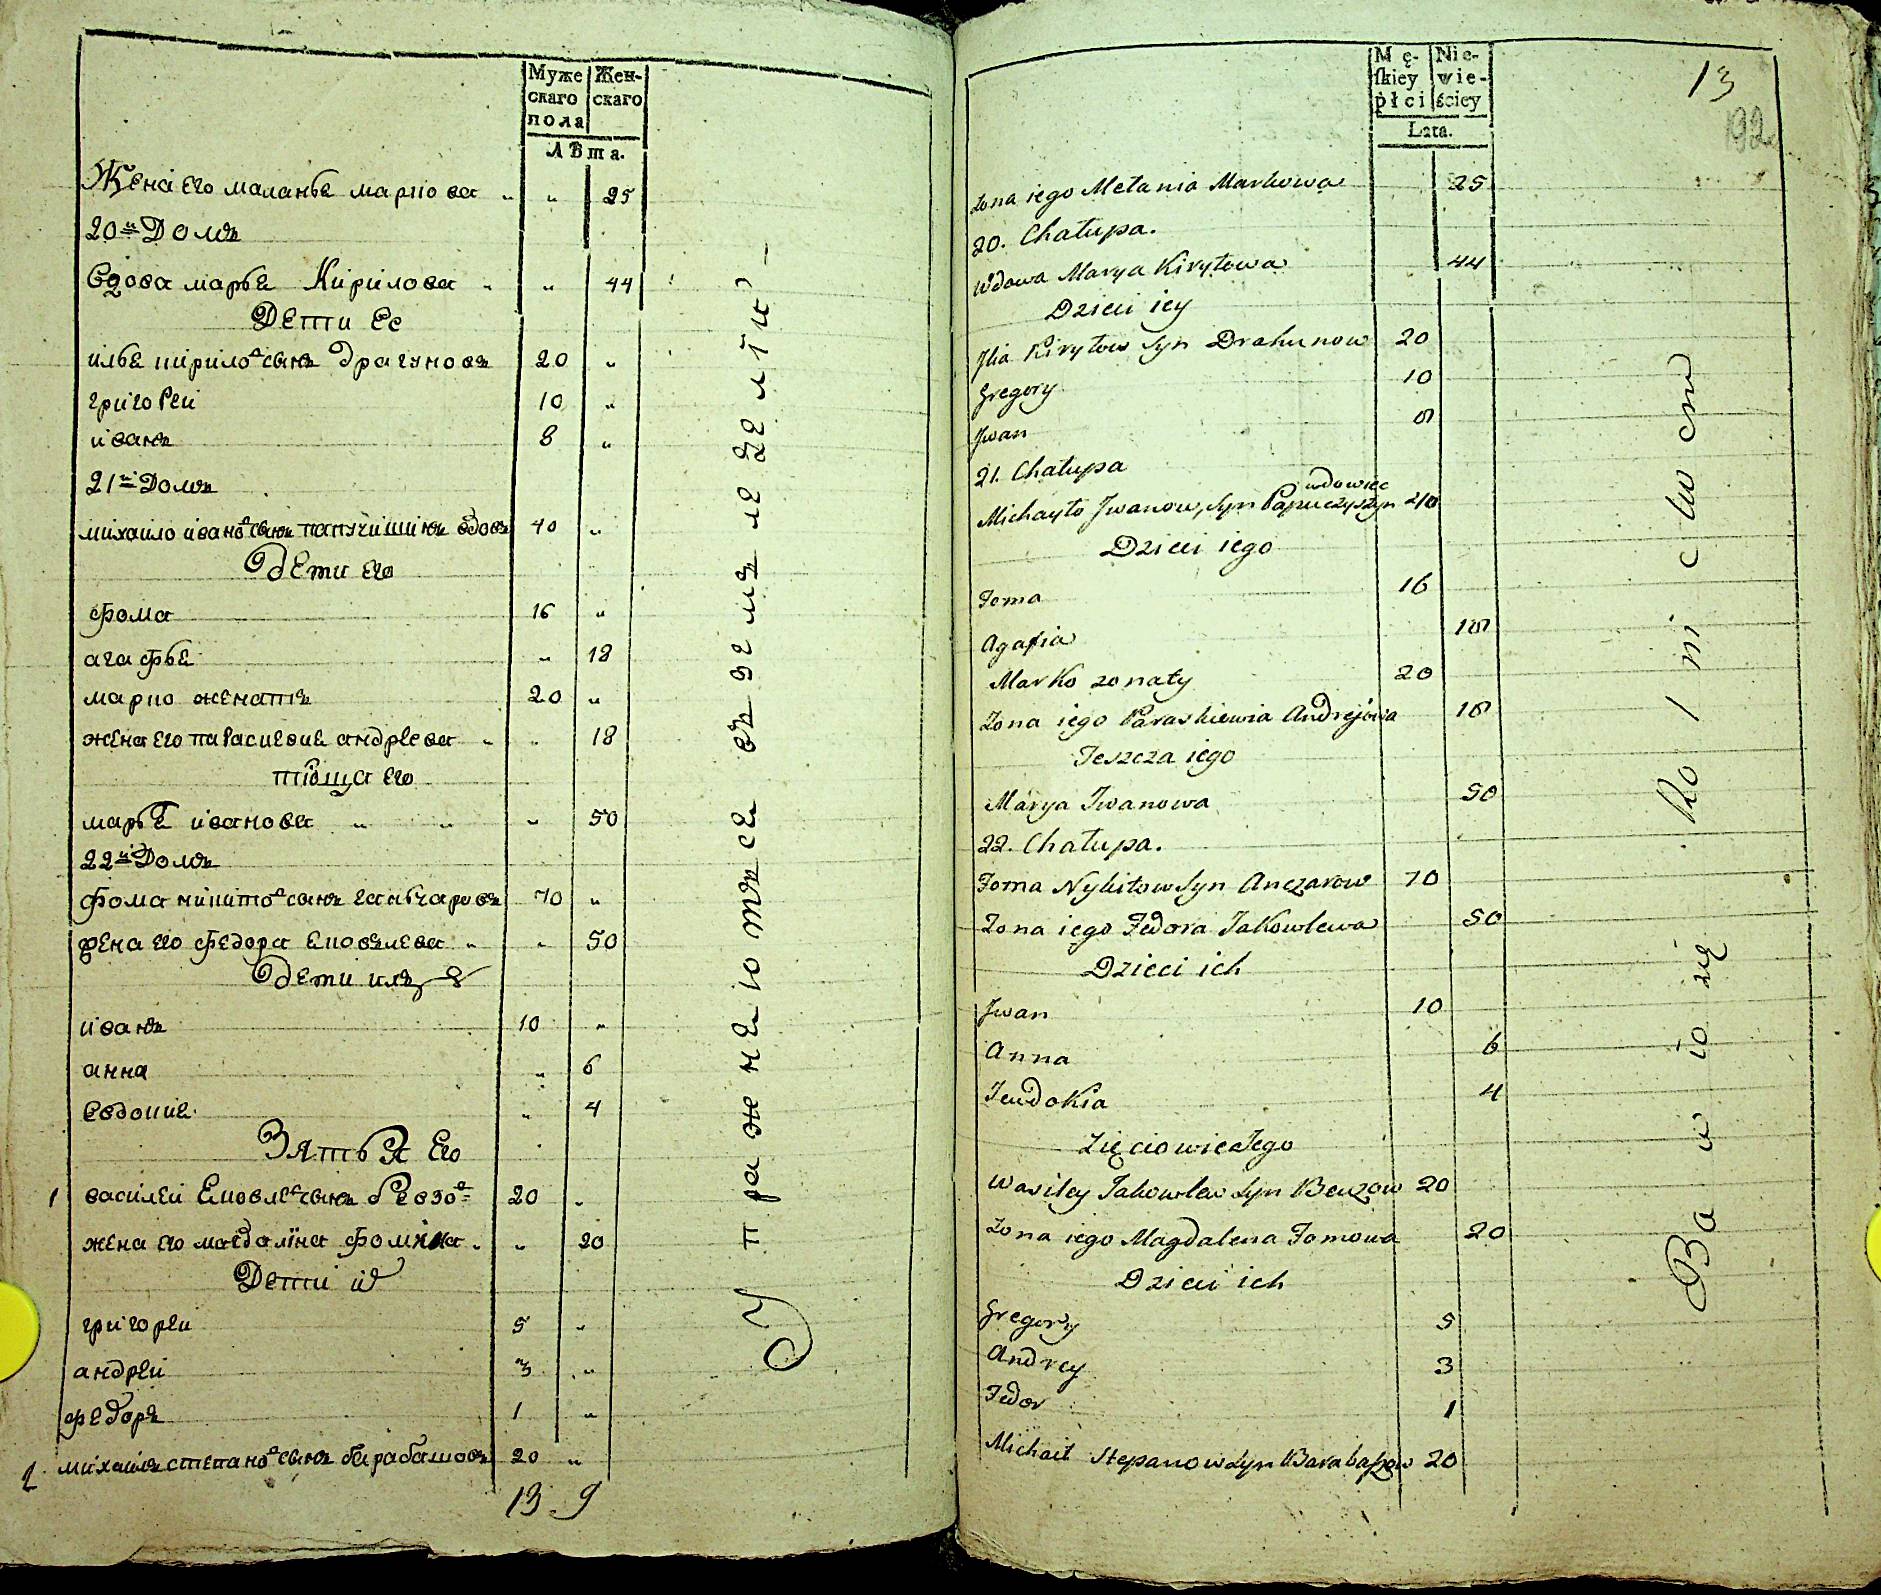 Муже
скаго
пола
Жен-
скаго
Лѣта.
Жена его маланья маркова " " 25
20й Домъ
вдова марья Кирилова " " 44
Дети Ее
илья кирило сынъ драгуновъ 20 "
григорей 10 "
иванъ 8 "
21й Домъ
михаило ивано сынъ папучишинъ вдовъ 40 "
дети его
фома 16 "
агафья " 18
марко женатъ 20 "
жена его параскевия андреева " " 18
тіоща его
марья иванова " " " 50
22й Домъ
фома никито сынъ ганчаровъ 70 "
жена его федора яковлева " " 50
дети ихъ
иванъ 10 "
анна " 6
евдокия " 4
Зятья Его
1 василей Яковле сынъ Ревзо 20 "
жена его магдалїна фомина " " 20
Дети их
григореи 5 "
андреи 3 "
федоръ 1 "
2 михаила степано сынъ барабашовъ 20 "
13 9
Упражнеютъся въ земледелїи
Mę-
skiey
płci
Nie-
wie-
ściey
Lata.
13
192
żona iego Melania Markowa 25
20. Chałupa.
Wdowa Marya Kiryłowa 44
Dzieci iey
Jlia Kiryłow Syn Drahunow 20
Gregory 10
Jwan 8
21. Chałupa
wdowiec
Michayło Jwanow Syn Papuczyszyn 40
Dzieci iego
Foma 16
Agafia 18
Marko żonaty 20
Żona iego Paraskiewia Andrejowa 18
Teszcza iego
Marya Jwanowa 50
22. Chałupa.
Foma Nykitow Syn Anczarow 70
Żona iego Fedora Jakowlewa 50
Dzieci ich
Jwan 10
Anna 6
Jeudokia 4
Zięciowie Jego
Wasiley Jakowlew Syn Beuzow 20
Żona iego Magdalena Fomowa 20
Dzieci ich
Gregory 5
Andrey 3
Fedor 1
Michaił Stepanow Syn Barabaszow 20
Bawią się Rolnictwem